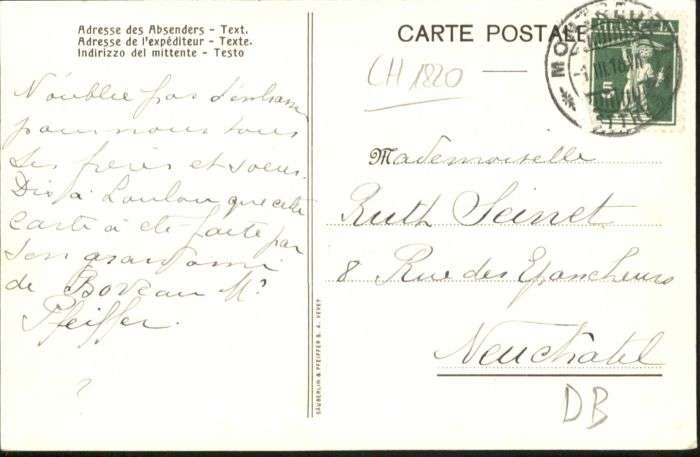 Adresse des Absenders - Text.
Adresse de l'expéditeur - Texte.
Indirizzo del mittente - Testo
CARTE POSTALE
CH 1820
HELVETIA
5
MONTREUX
N'oublie pas
pour nous tous
Ses frères et soeurs.
Dis à Loulou que cette
carte à été faite par
son grand ami
de Boveau Mr
Pfeiffer.
?
Mademoiselle
Ruth Seinet
8 Rue des Epancheurs
Neuchâtel
DB
SÄUBERLIN & PFEIFFER S. A. VEVEY